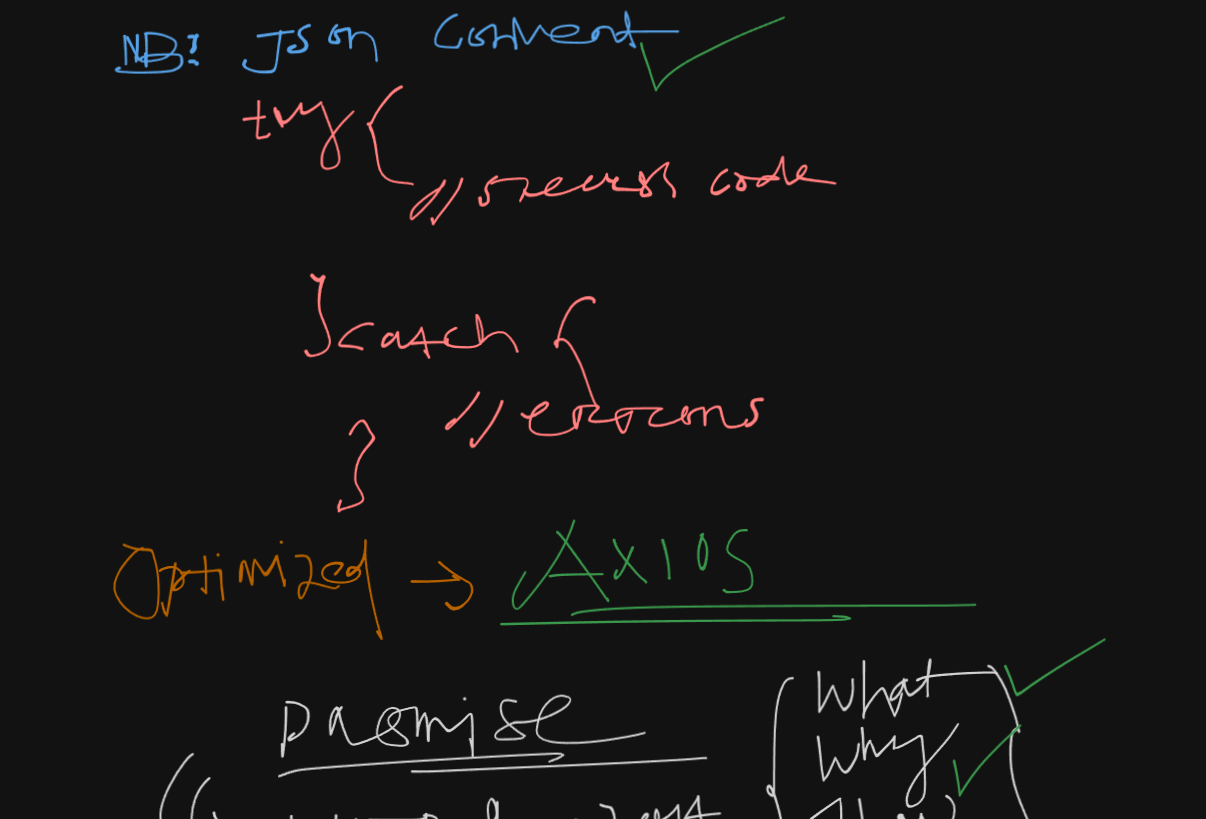 NB: Json Convert
try {
// success code
} catch {
// errors
}
Optimized → AXIOS
promise
What
Why